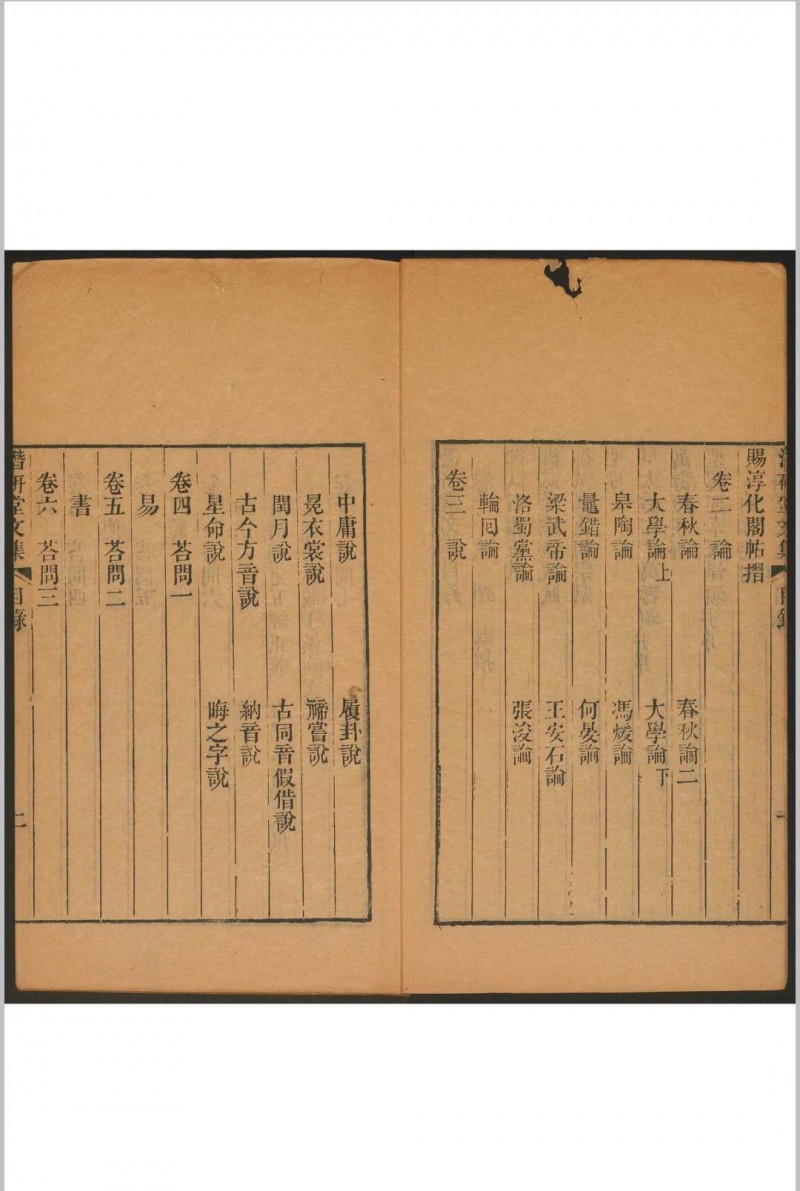 賜淳化閣帖摺
卷二　論
春秋論　春秋論二
大學論上　大學論下
臯陶論　馮煖論
鼂錯論　何晏論
梁武帝論　王安石論
洛蜀黨論　張浚論
輪回論
卷三　說
中庸說　履卦說
冕衣裳說　禘嘗說
閏月說　古同音假借說
古今方音說　納音說
星命說　晦之字說
卷四　荅問一
易
卷五　荅問二
書
卷六　荅問三
潛研堂文集　目錄　二